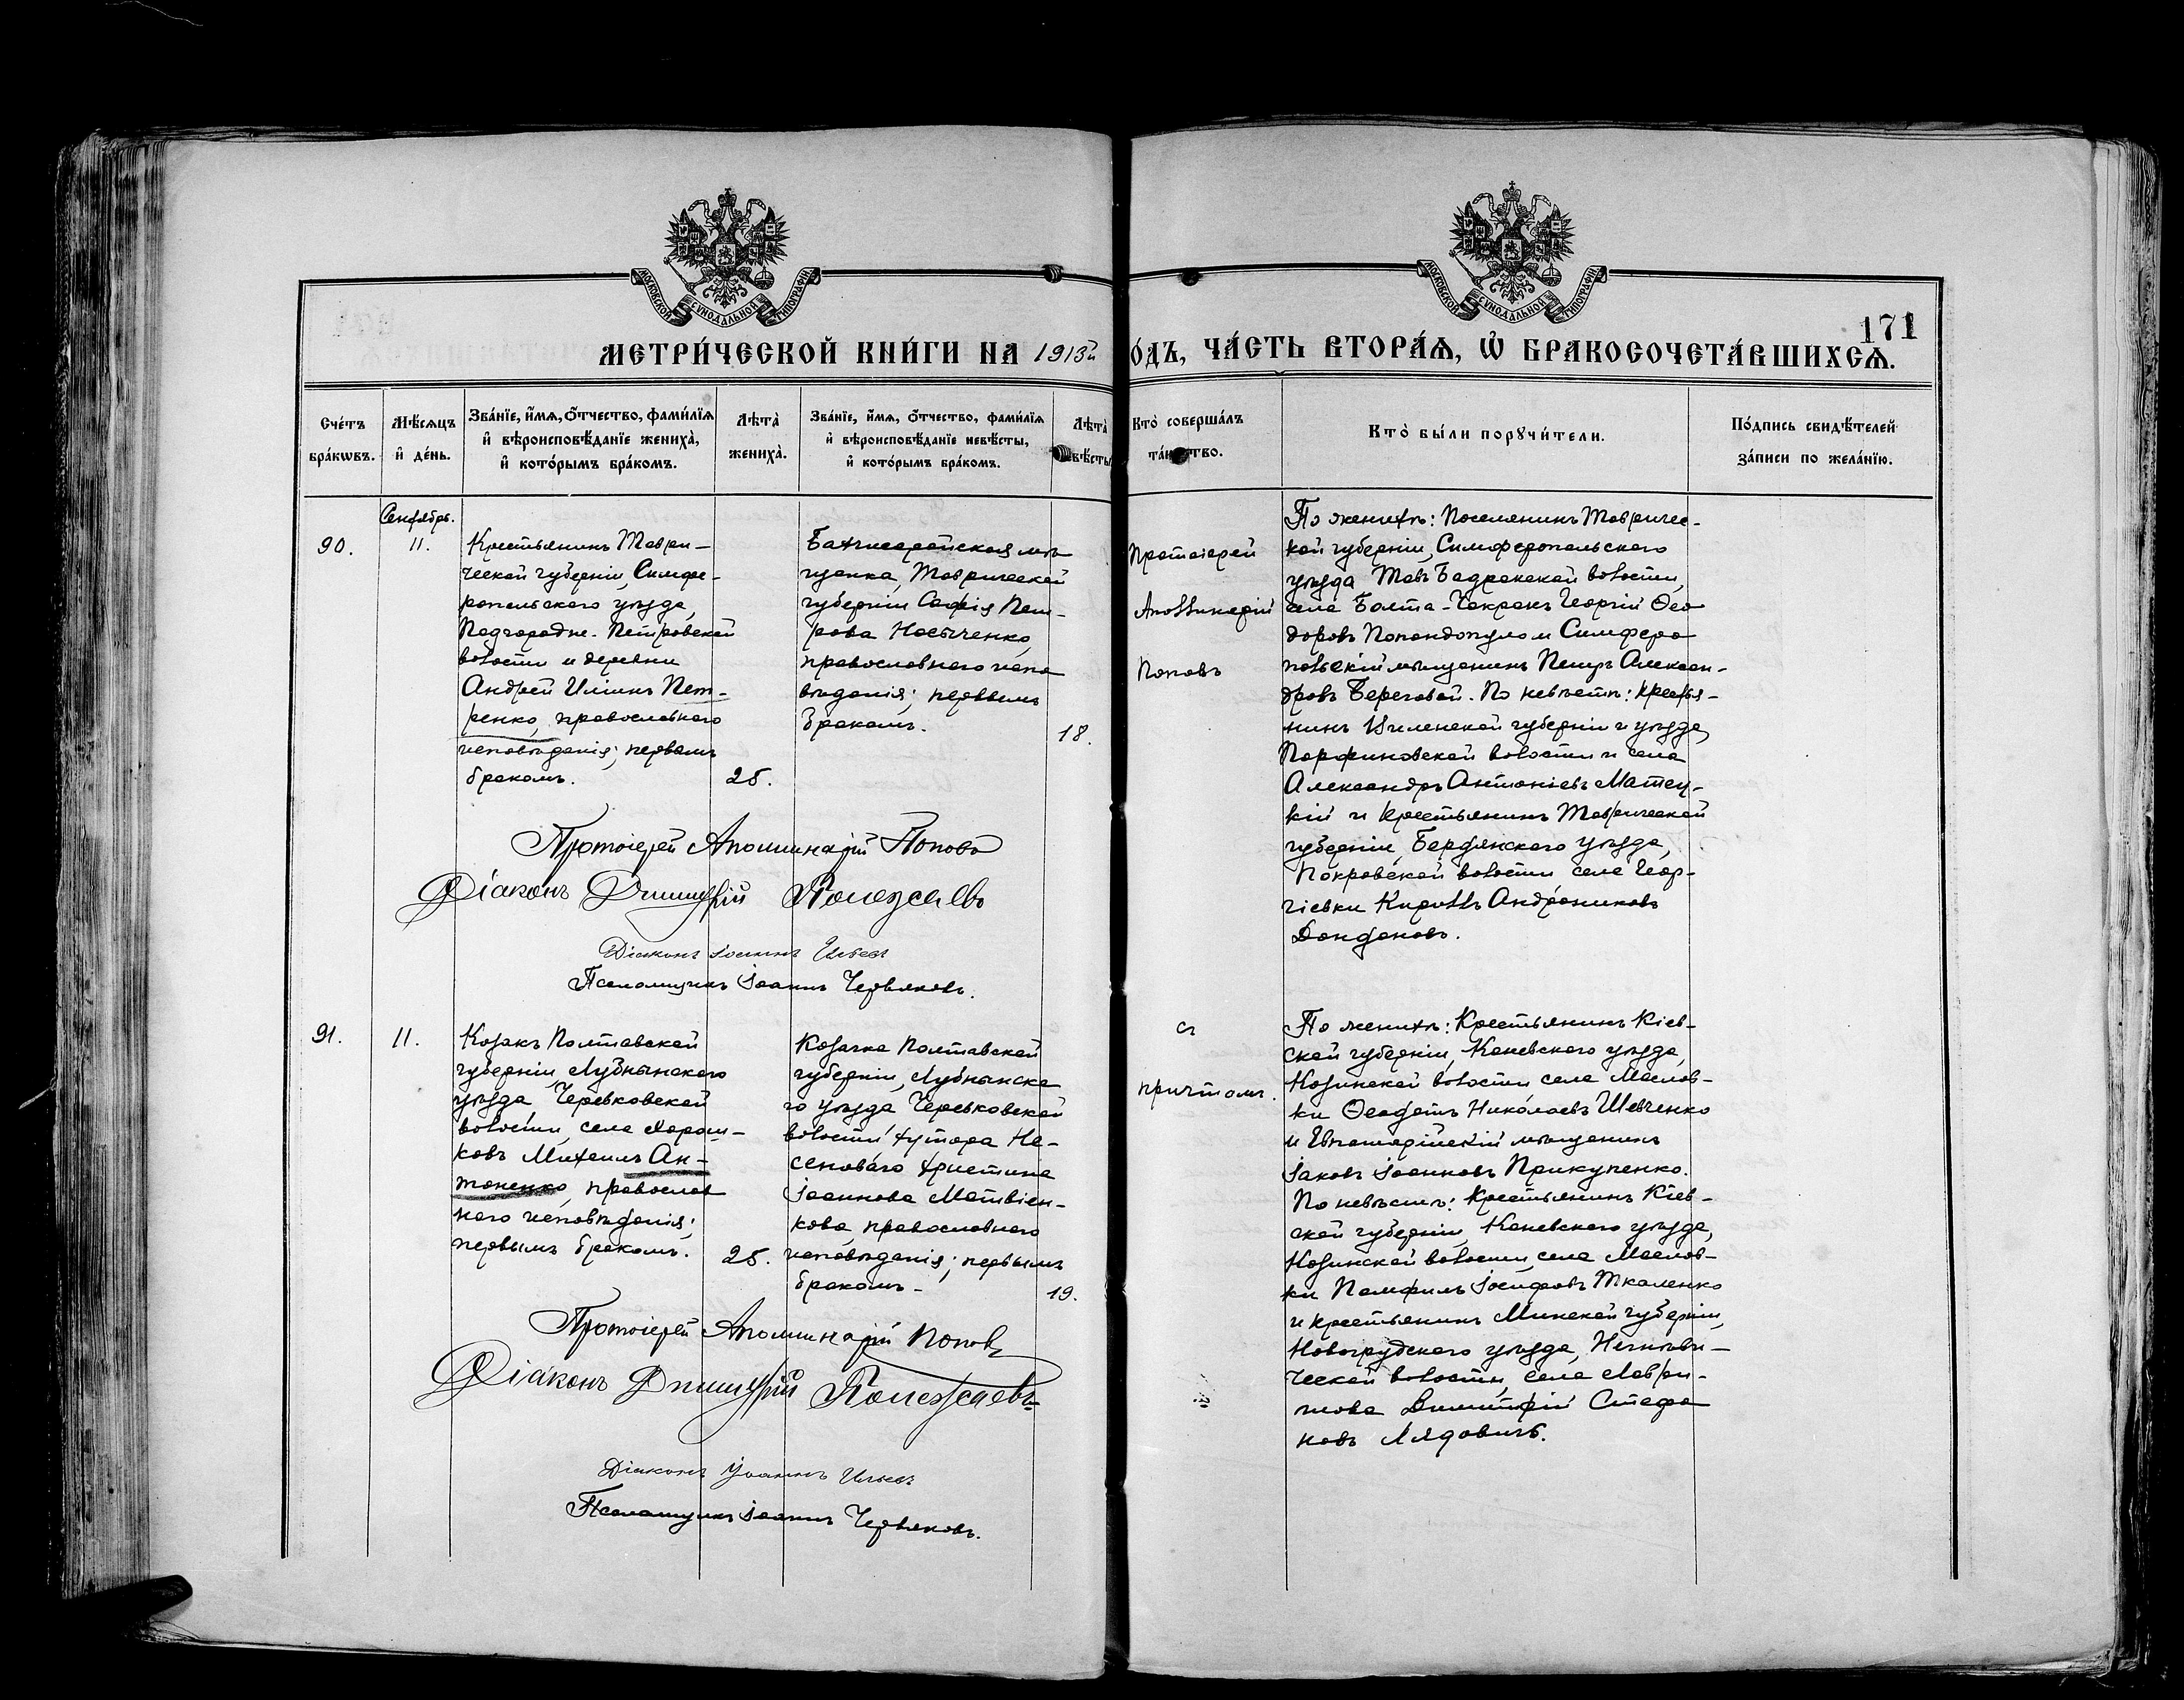 МОСКОВСКОЙ СѴНОДАЛЬНОЙ ТИПОГРАФІИ
МОСКОВСКОЙ СѴНОДАЛЬНОЙ ТИПОГРАФІИ
171
МЕТРИ́ЧЕСКОЙ КНИ́ГИ НА 1913й
О́ДЪ, ЧА́СТЬ ВТОРА́Ѧ, Ѽ БРАКОСОЧЕТА́ВШИХСѦ.
Сче́тъ бра́кѡвъ.
Мѣ́сѧцъ и҆ де́нь.
Зва́нїе, и҆́мѧ, ѻ҆́тчество, фами́лїѧ
и҆ вѣроисповѣ́данїе жениха̀,
и҆ кото́рымъ бра́комъ.
Лѣта̀ жениха̀.
Зва́нїе, и҆́мѧ, ѻ҆́тчество, фами́лїѧ
и҆ вѣроисповѣ́данїе невѣ́сты,
и҆ кото́рымъ бра́комъ.
Лѣта̀
вѣ́сты
Кто̀ соверша́лъ
та́инство.
Кто̀ бы́ли порꙋчи́тели.
По́дпись свидѣ́телей
за́писи по жела́нїю.
Сентябрь.
90.
11.
Крестьянинъ Таври-
ческой губерніи, Симфе-
ропольскаго уѣзда,
Подгородне-Петровской
волости и деревни
Андрей Иліинъ Пет-
ренко, православнаго
исповѣданія; первымъ
бракомъ.
25.
Бахчисарайская мѣ-
щанка, Таврической
губерніи Софія Пет-
рова Носыченко,
православнаго испо
вѣданія; первымъ
бракомъ.
18.
Протоіерей
Аполлинарій
Поповъ
По женихѣ: Поселянинъ Тавричес-
кой губерніи, Симферопольскаго
уѣзда Тавъ-Бадракской волости,
села Болта-Чокракъ Георгій Ѳео
доровъ Попондопуло и Симферо
польскій мѣщанинъ Петръ Алексан-
дровъ Береговой. По невѣстѣ: Крестья-
нинъ Виленской губерніи и уѣзда,
Парфиновской волости и села
Александръ Антоніевъ Матец-
кій и крестьянинъ Таврической
губерніи, Бердянскаго уѣзда,
Покровской волости села Геор-
гіевки Кириллъ Андрониковъ
Донфоновъ.
Протоіерей Аполлинарій Поповъ
Діаконъ Димитрій Полежаевъ
Діаконъ Іоаннъ
Псаломщикъ Іоаннъ Червяковъ.
91.
11.
Козакъ Полтавской
губерніи Лубнынскаго
уѣзда Черевковской
волости, села Хорош-
ковъ Михаилъ Ан-
тоненко, православ
наго исповѣданія;
первымъ бракомъ.
25.
Козачка Полтавской
губерніи, Лубнынска
го уѣзда Черевковской
волости хутора Не-
сеноваго Христина
Іоаннова Матвіен-
кова, православнаго
исповѣданія; первымъ
бракомъ.
19.
съ
причтомъ.
По женихѣ: Крестьянинъ Кіев-
ской губерніи, Каневскаго уѣзда,
Козинской волости села Маслов-
ки Ѳеодотъ Николаевъ Шевченко
и Евпаторійскій мѣщанинъ
Іаковъ Іоанновъ Прикупенко.
По невѣстѣ: Крестьянинъ Кіев-
ской губерніи, Каневскаго уѣзда,
Козинской волости, села Маслов-
ки Памфилъ Іосифовъ Ткаленко
и крестьянинъ Минской губерніи,
Новогрудскаго уѣзда,
ческой волости, села Лаври-
шова Димитрій Стефа
новъ Лядовичъ.
Протоіерей Аполлинарій Поповъ
Діаконъ Димитрій Полежаевъ
Діаконъ Іоаннъ
Псаломщикъ Іоаннъ Червяковъ.